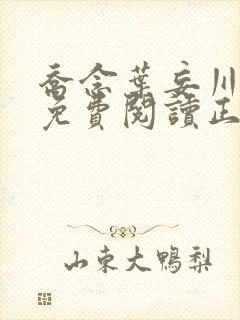 喬念葉妄川
免費閱讀正
山東大鴨梨